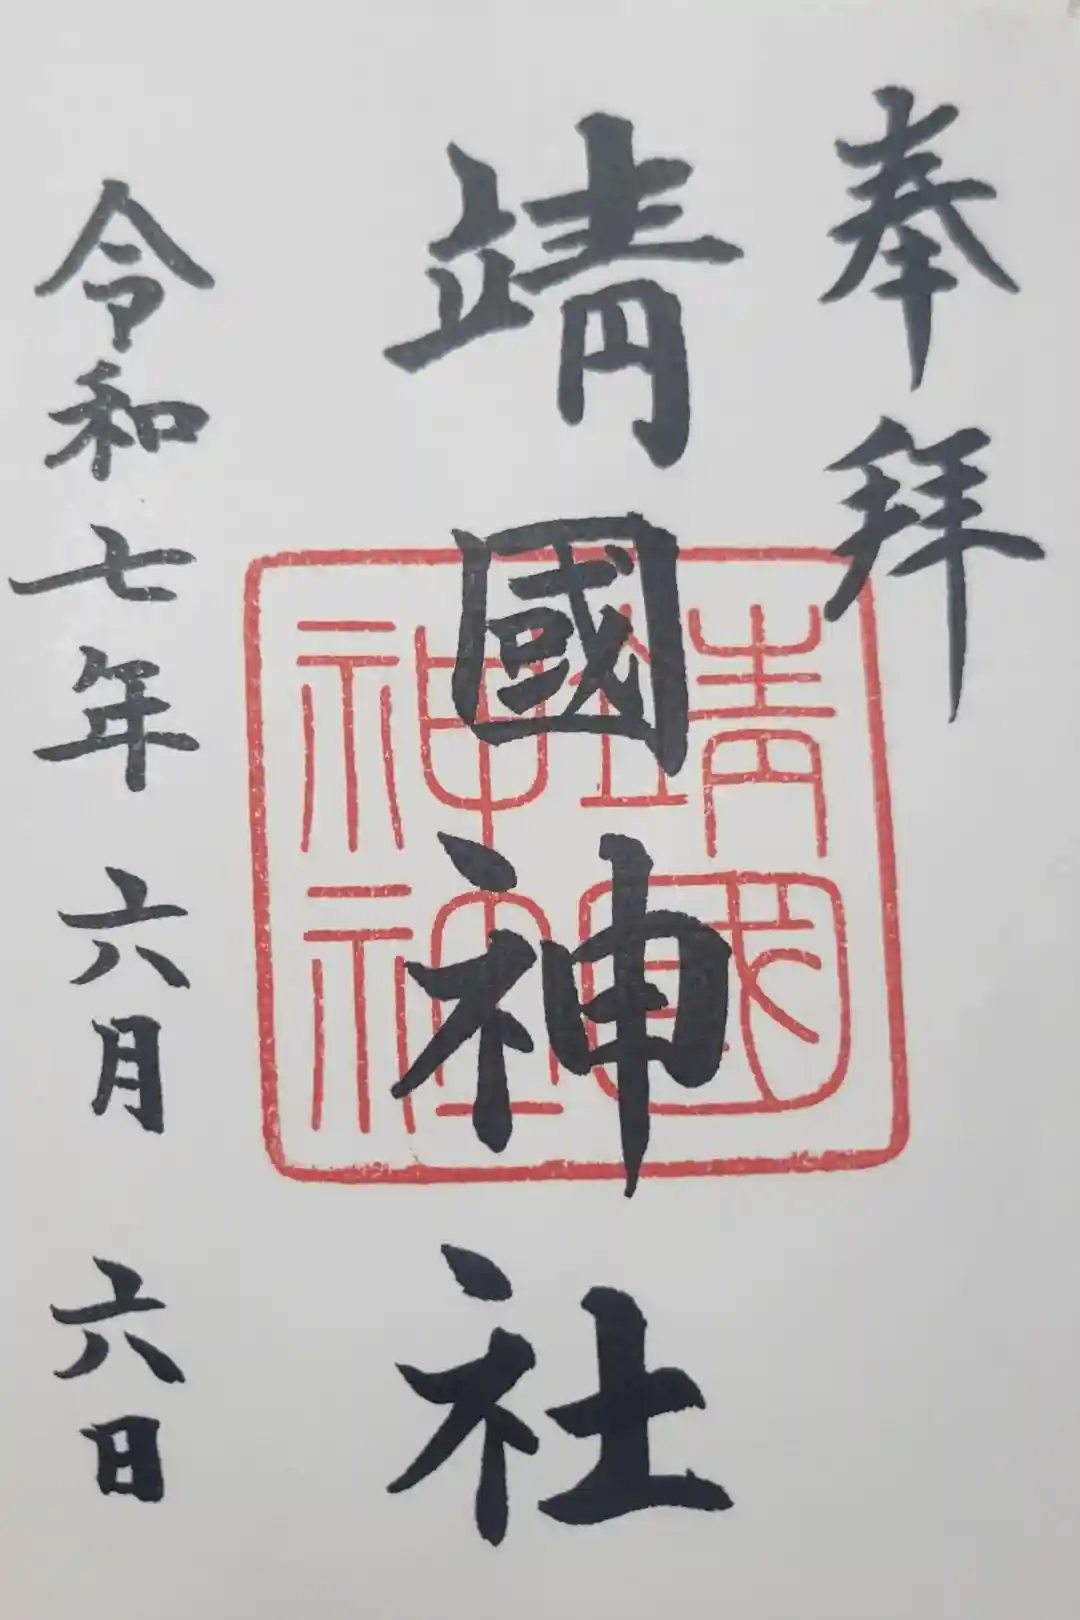 奉拝
靖國神社
靖國
神社
令和七年 六月 六日